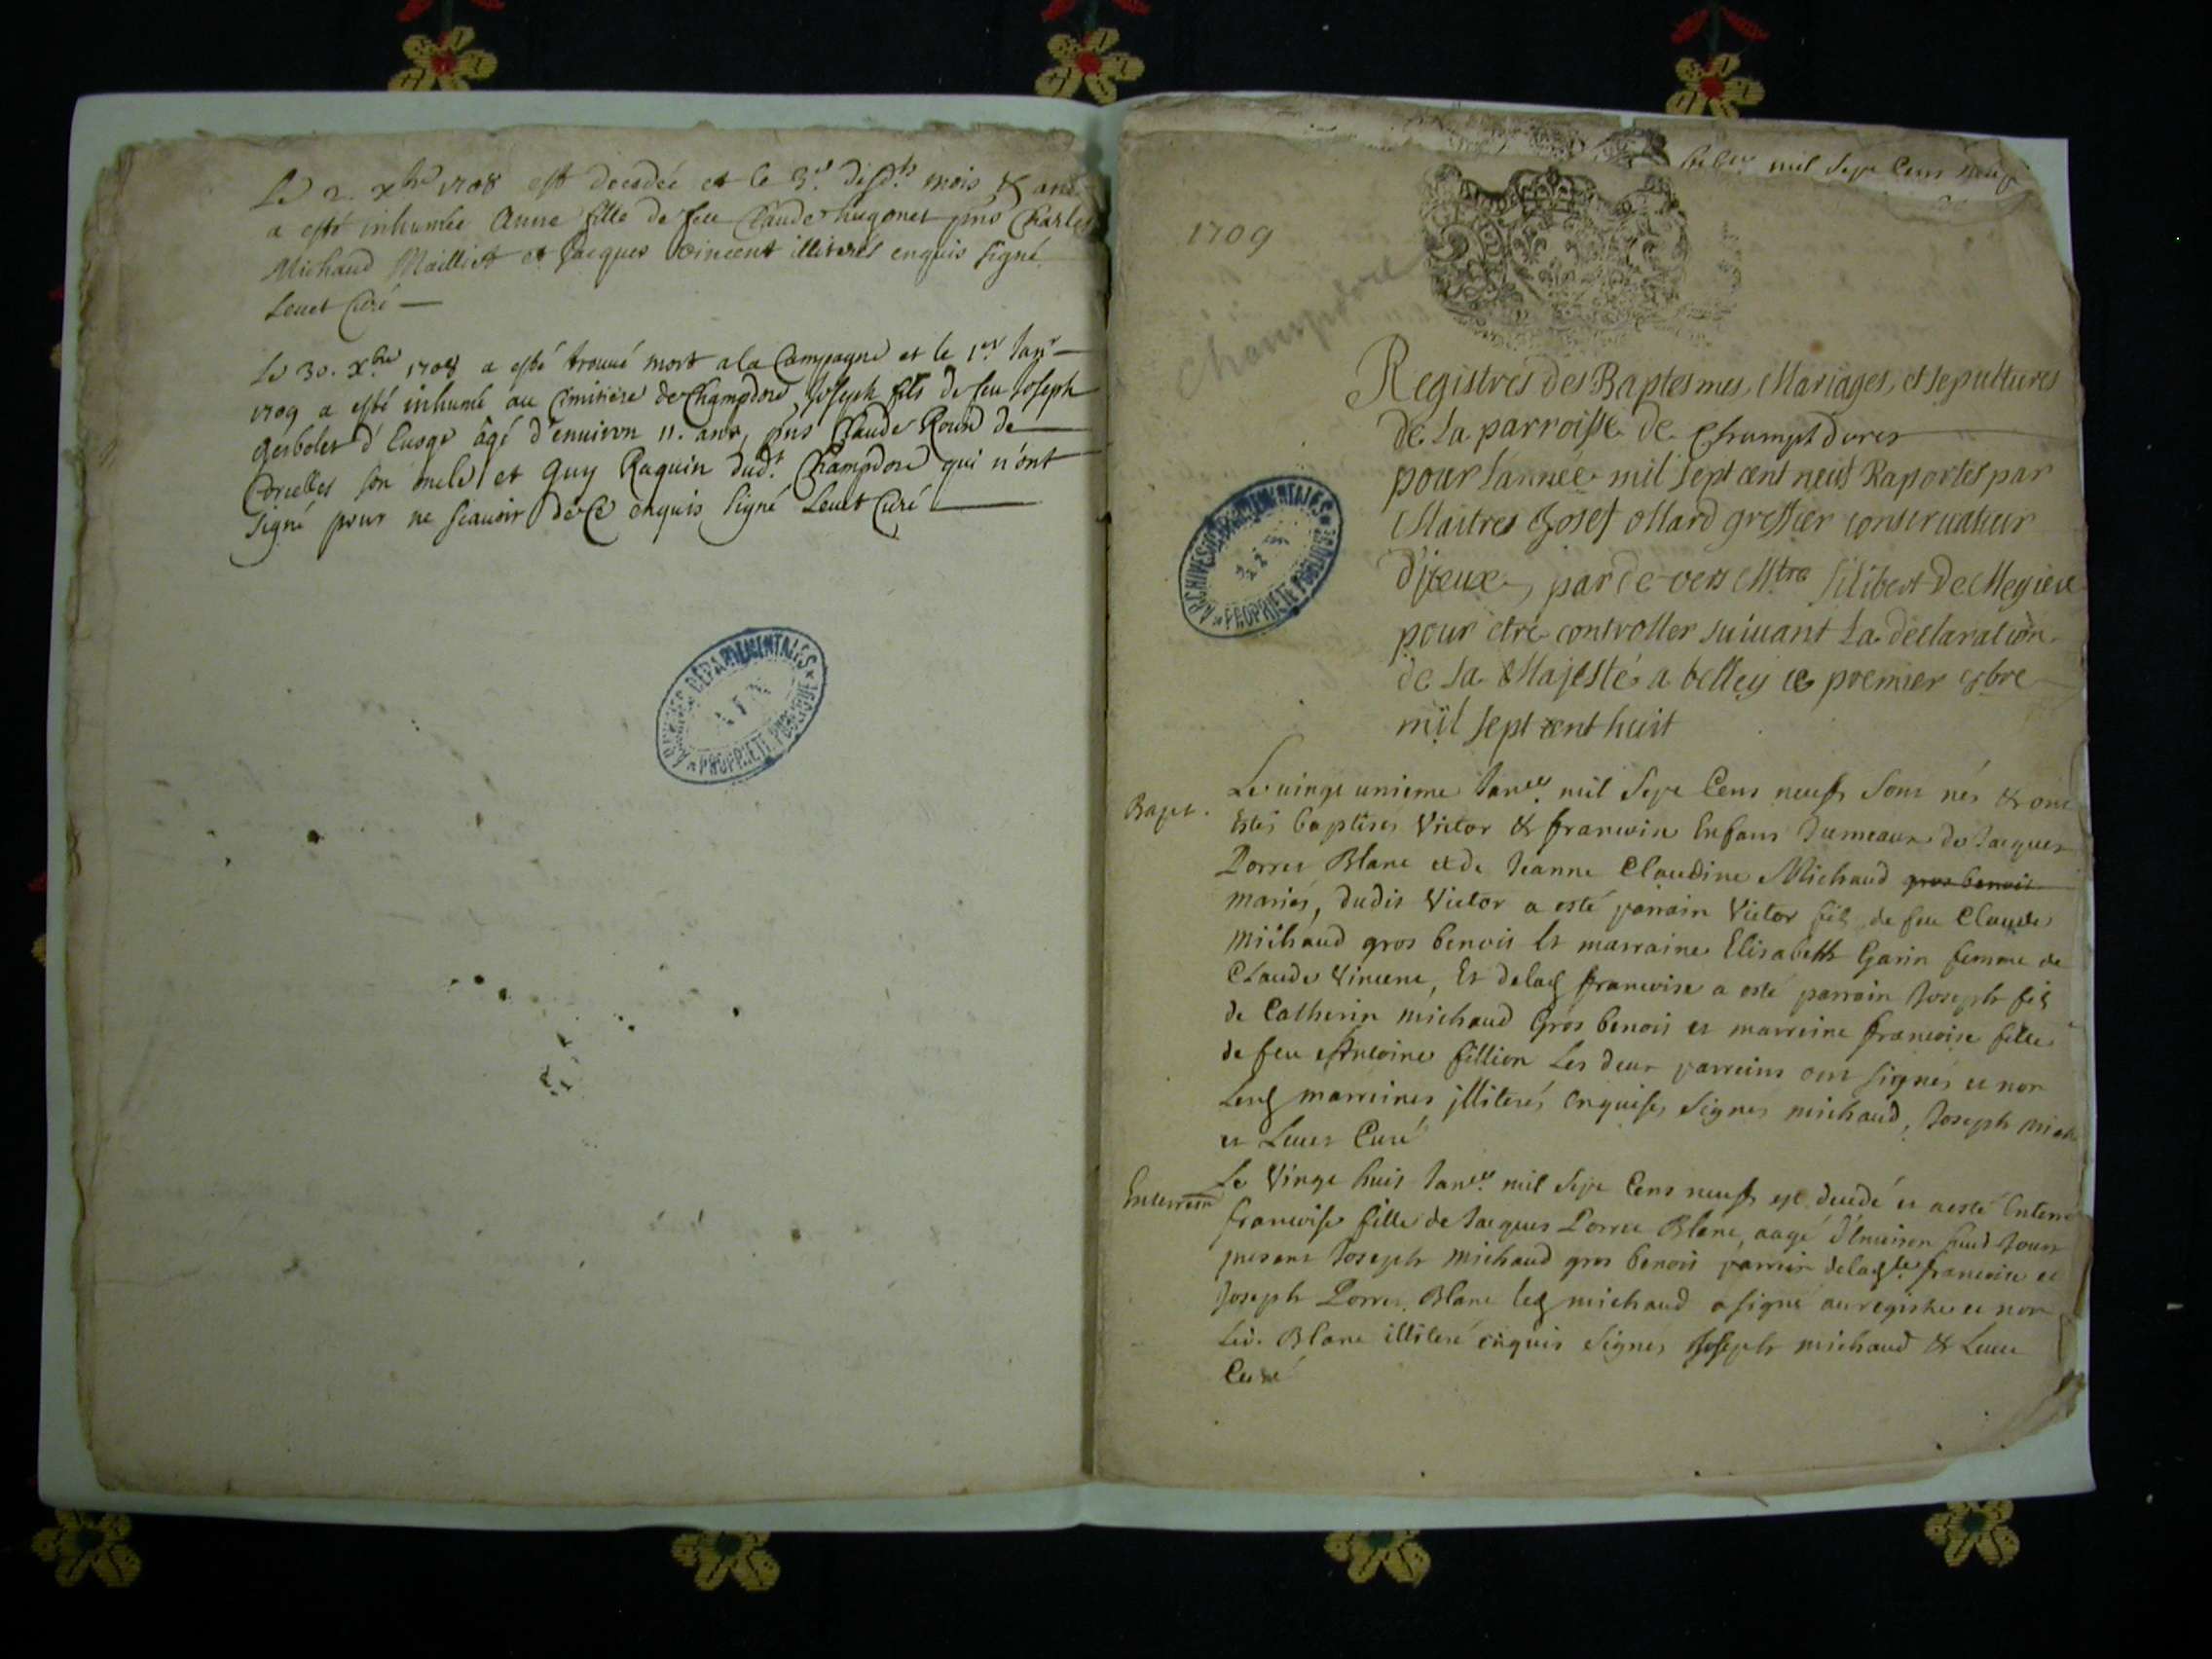 Le 2. xbre 1708 est decedée et le 3e. desdts mois & an
a esté inhumée Anne fille de feu Claude hugonet pnts Charles
Michaud Malliet et Jacques Vincent illiterés enquis signé
Leuet Curé
Le 30. xbre 1708 a esté trouué mort a la Campagne et le 1er Janr
1709 a esté inhumé au Cimitiere de Champdore Joseph fils de feu Joseph
d'
âgé d'enuiron 11. ans, pnts Claude Roux de
Corcelles son oncle et Guy Raquin dudt Champdore qui n'ont
signé pour ne scauoir de ce enquis signé Leuet Curé
ARCHIVES DÉPARTEMENTALES
AIN
PROPRIÉTÉ PUBLIQUE
mil sept Cens neuf
1709
Champdore
Registres des Baptesmes, Mariages, et sepultures
de La parroisse de Champt dores
pour L'année mil sept cent neuf Raportes par
Maitres Josef ollard greffier conseruateur
d'iceux, par de vers Mtre filibert De Megiere
pour etre controller suiuant La declaration
de sa Majesté a belley ce premier
mil sept cent huit
ARCHIVES DÉPARTEMENTALES
AIN
PROPRIÉTÉ PUBLIQUE
Bapt.
Le uingt unieme Januer mil Sept Cens neuf sont nés & ont
Estés baptises Victor & francoise Enfans Jumeaux de Jacques
Dorrer Blanc et de Jeanne Claudine Michaud gros benoit
mariés, dudit Victor a esté parrain Victor fils de feu Claude
Michaud gros benoit Et marraine Elisabeth Garin femme de
Claude Vincent, Et delad francoise a esté parrain Joseph fils
de Catherin michaud Gros benoit et marreine francoise fille
de feu Antoine fillion Les deux parreins ont signés et non
Lesd marreines illiterés enquises Signes michaud, Joseph Mich
et Leuet Curé
Enterrem
Le Vingt huit Januer mil Sept Cens neuf est decedé et a esté Enterré
francoise fille de Jacques Dorrer Blanc, aagé d'Enuiron huit Jours
presens Joseph Michaud gros benoit parrein deladte francoise et
Joseph Dorrer Blanc led michaud a signé au registre et non
Led. Blanc illiteré enquis Signes Joseph michaud & Leuet
Curé